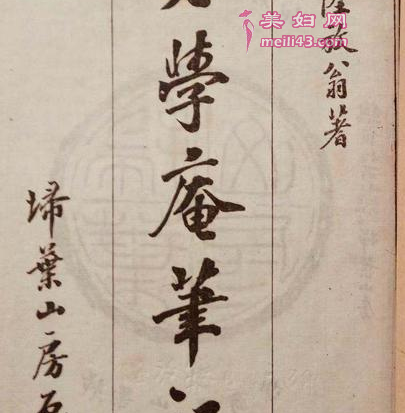 美妇网
meili43.com
陸放翁著
學庵筆
埽葉山房石